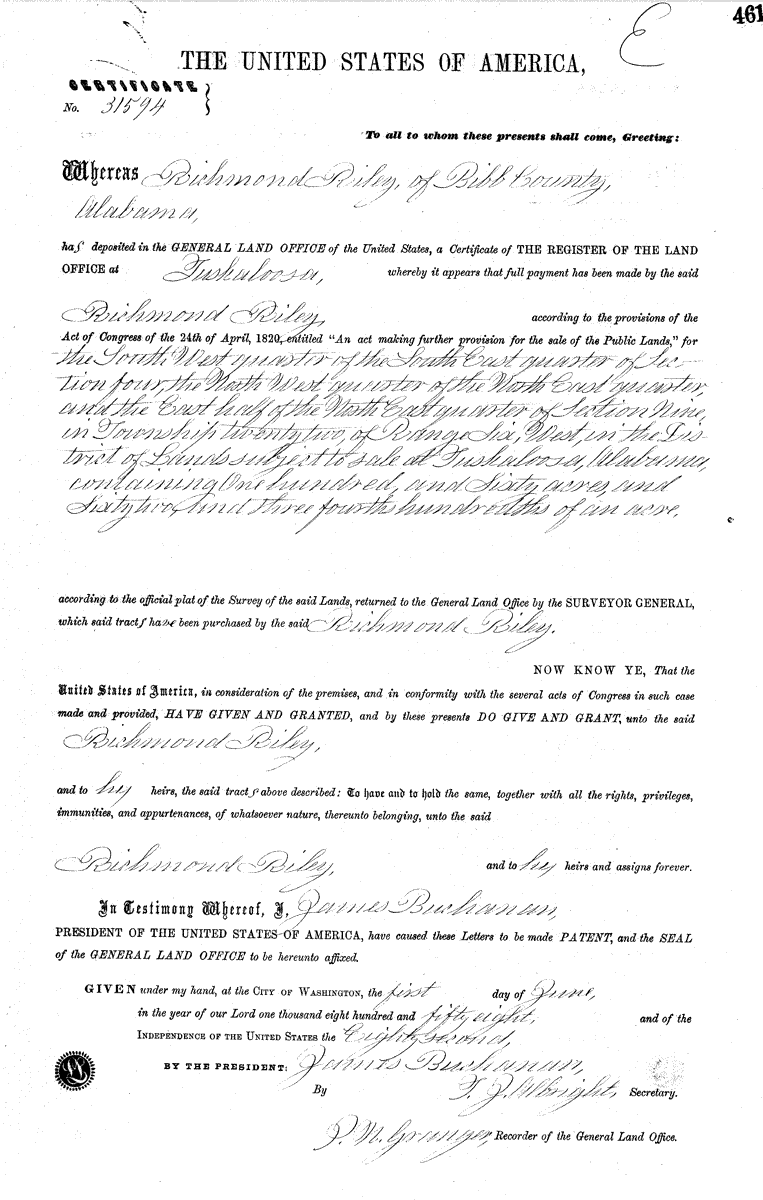 461
E
THE UNITED STATES OF AMERICA,
CERTIFICATE
No. 31594
To all to whom these presents shall come, Greeting:
Whereas Richmond Riley, of Bibb County,
Alabama,
has deposited in the GENERAL LAND OFFICE of the United States, a Certificate of THE REGISTER OF THE LAND
OFFICE at Tuskaloosa, whereby it appears that full payment has been made by the said
Richmond Riley, according to the provisions of the
Act of Congress of the 24th of April, 1820, entitled "An act making further provision for the sale of the Public Lands," for
the South West quarter of the South East quarter of Sec-
tion four, the North West quarter of the North East quarter,
and the East half of the North East quarter of Section Nine,
in Township twenty two, of Range Six, West, in the Dis-
trict of Lands subject to sale at Tuskaloosa, Alabama,
containing One hundred, and Sixty acres, and
Sixty two, and three fourths hundredths of an acre.
according to the official plat of the Survey of the said Lands, returned to the General Land Office by the SURVEYOR GENERAL,
which said tracts have been purchased by the said Richmond Riley.
NOW KNOW YE, That the
United States of America, in consideration of the premises, and in conformity with the several acts of Congress in such case
made and provided, HAVE GIVEN AND GRANTED, and by these presents DO GIVE AND GRANT, unto the said
Richmond Riley,
and to his heirs, the said tracts above described: To have and to hold the same, together with all the rights, privileges,
immunities, and appurtenances, of whatsoever nature, thereunto belonging, unto the said
Richmond Riley, and to his heirs and assigns forever.
In Testimony Whereof, I, James Buchanan,
PRESIDENT OF THE UNITED STATES OF AMERICA, have caused these Letters to be made PATENT, and the SEAL
of the GENERAL LAND OFFICE to be hereunto affixed.
GIVEN under my hand, at the CITY OF WASHINGTON, the first day of June,
in the year of our Lord one thousand eight hundred and fifty eight, and of the
INDEPENDENCE OF THE UNITED STATES the Eighty second,
BY THE PRESIDENT: James Buchanan,
By T. J. Albright, Secretary.
J. N. Granger, Recorder of the General Land Office.